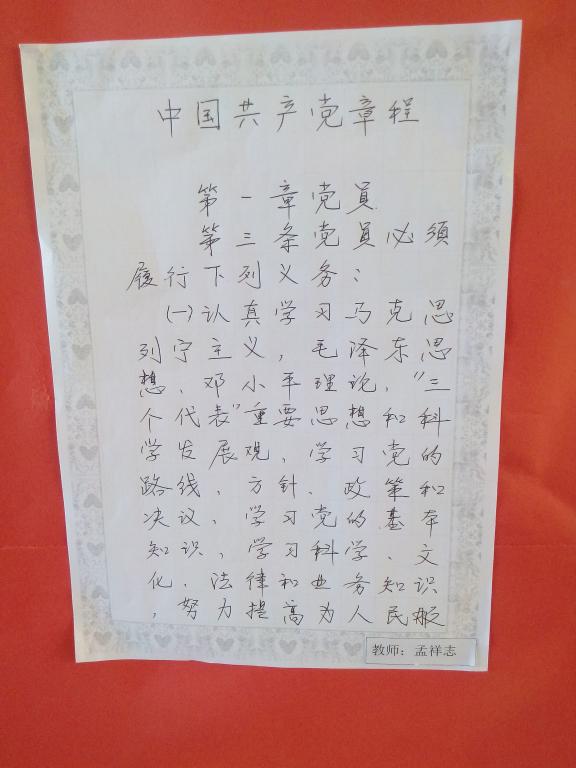 中国共产党章程
第一章党员
第三条党员必须
履行下列义务：
(一)认真学习马克思
列宁主义，毛泽东思
想、邓小平理论、“三
个代表”重要思想和科
学发展观，学习党的
路线、方针、政策和
决议，学习党的基本
知识，学习科学、文
化、法律和业务知识
，努力提高为人民服
教师：孟祥志